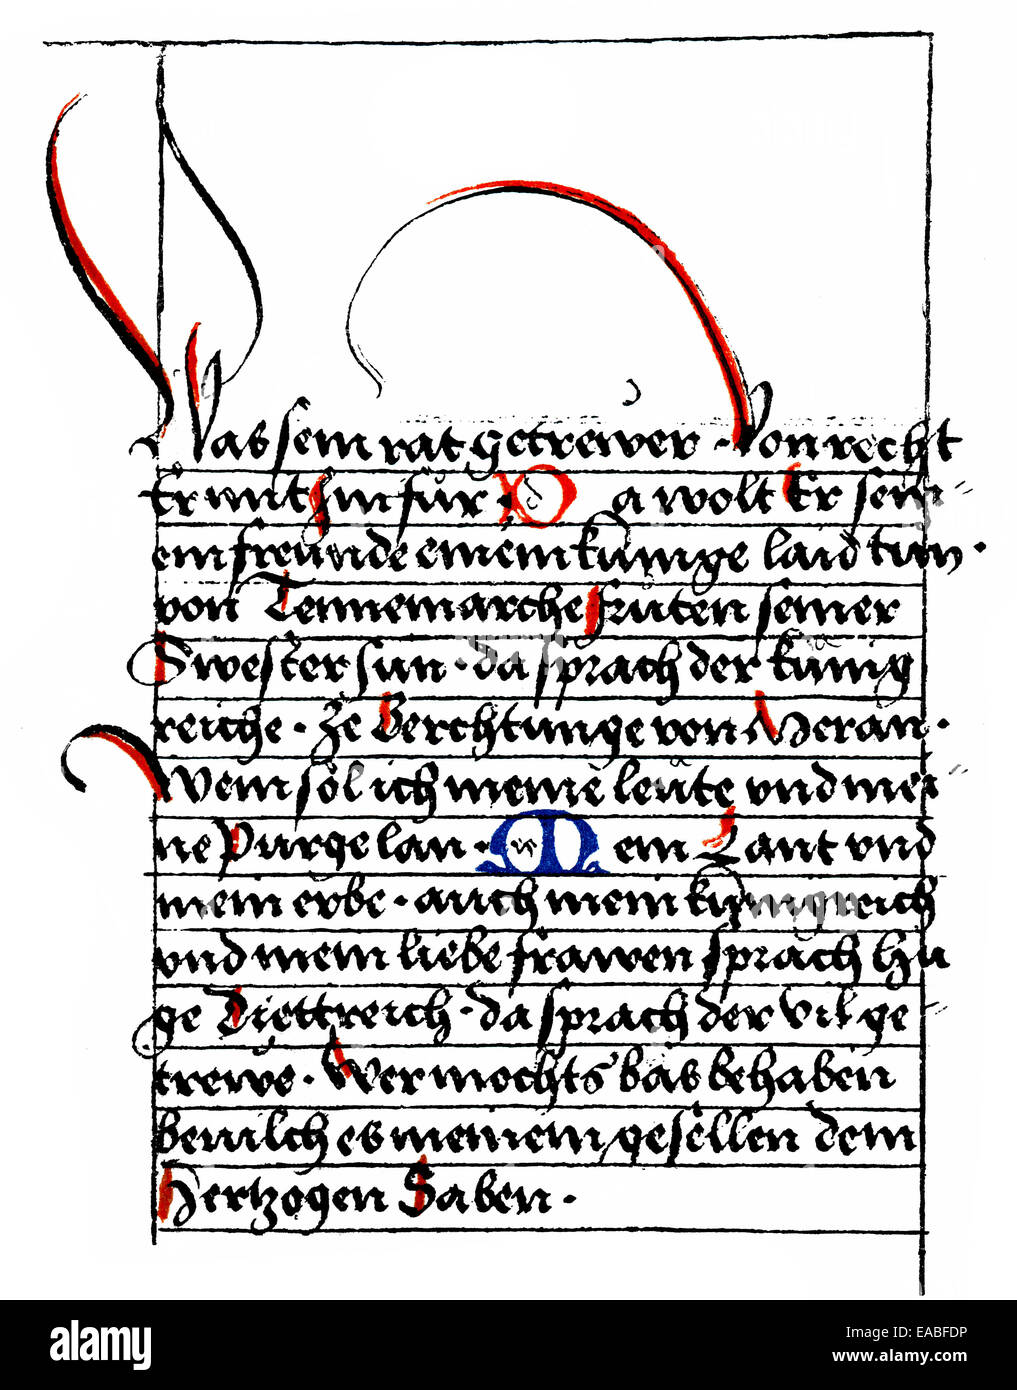 Was sein rat getrewer · Von recht
Er mit Im für · Da wolt Er sein
ein freunde einem kunige laid tun ·
von Tennemarche fruten seiner
Swester sun · da sprach der kunig
reiche · Ze Berchtunge von Meran ·
Wem sol ich meine leute vnd mei
ne Purge lan · Mein Lant vnd
mein erbe · auch mein kunigreich
vnd mein liebe frawen sprach Hu
ge Diettreich · da sprach der vil ge
trewe · Wer mochts bas behaben
beuilch es meinem gesellen dem
Hertzogen Saben ·
alamy
Image ID: EABFDP
www.alamy.com